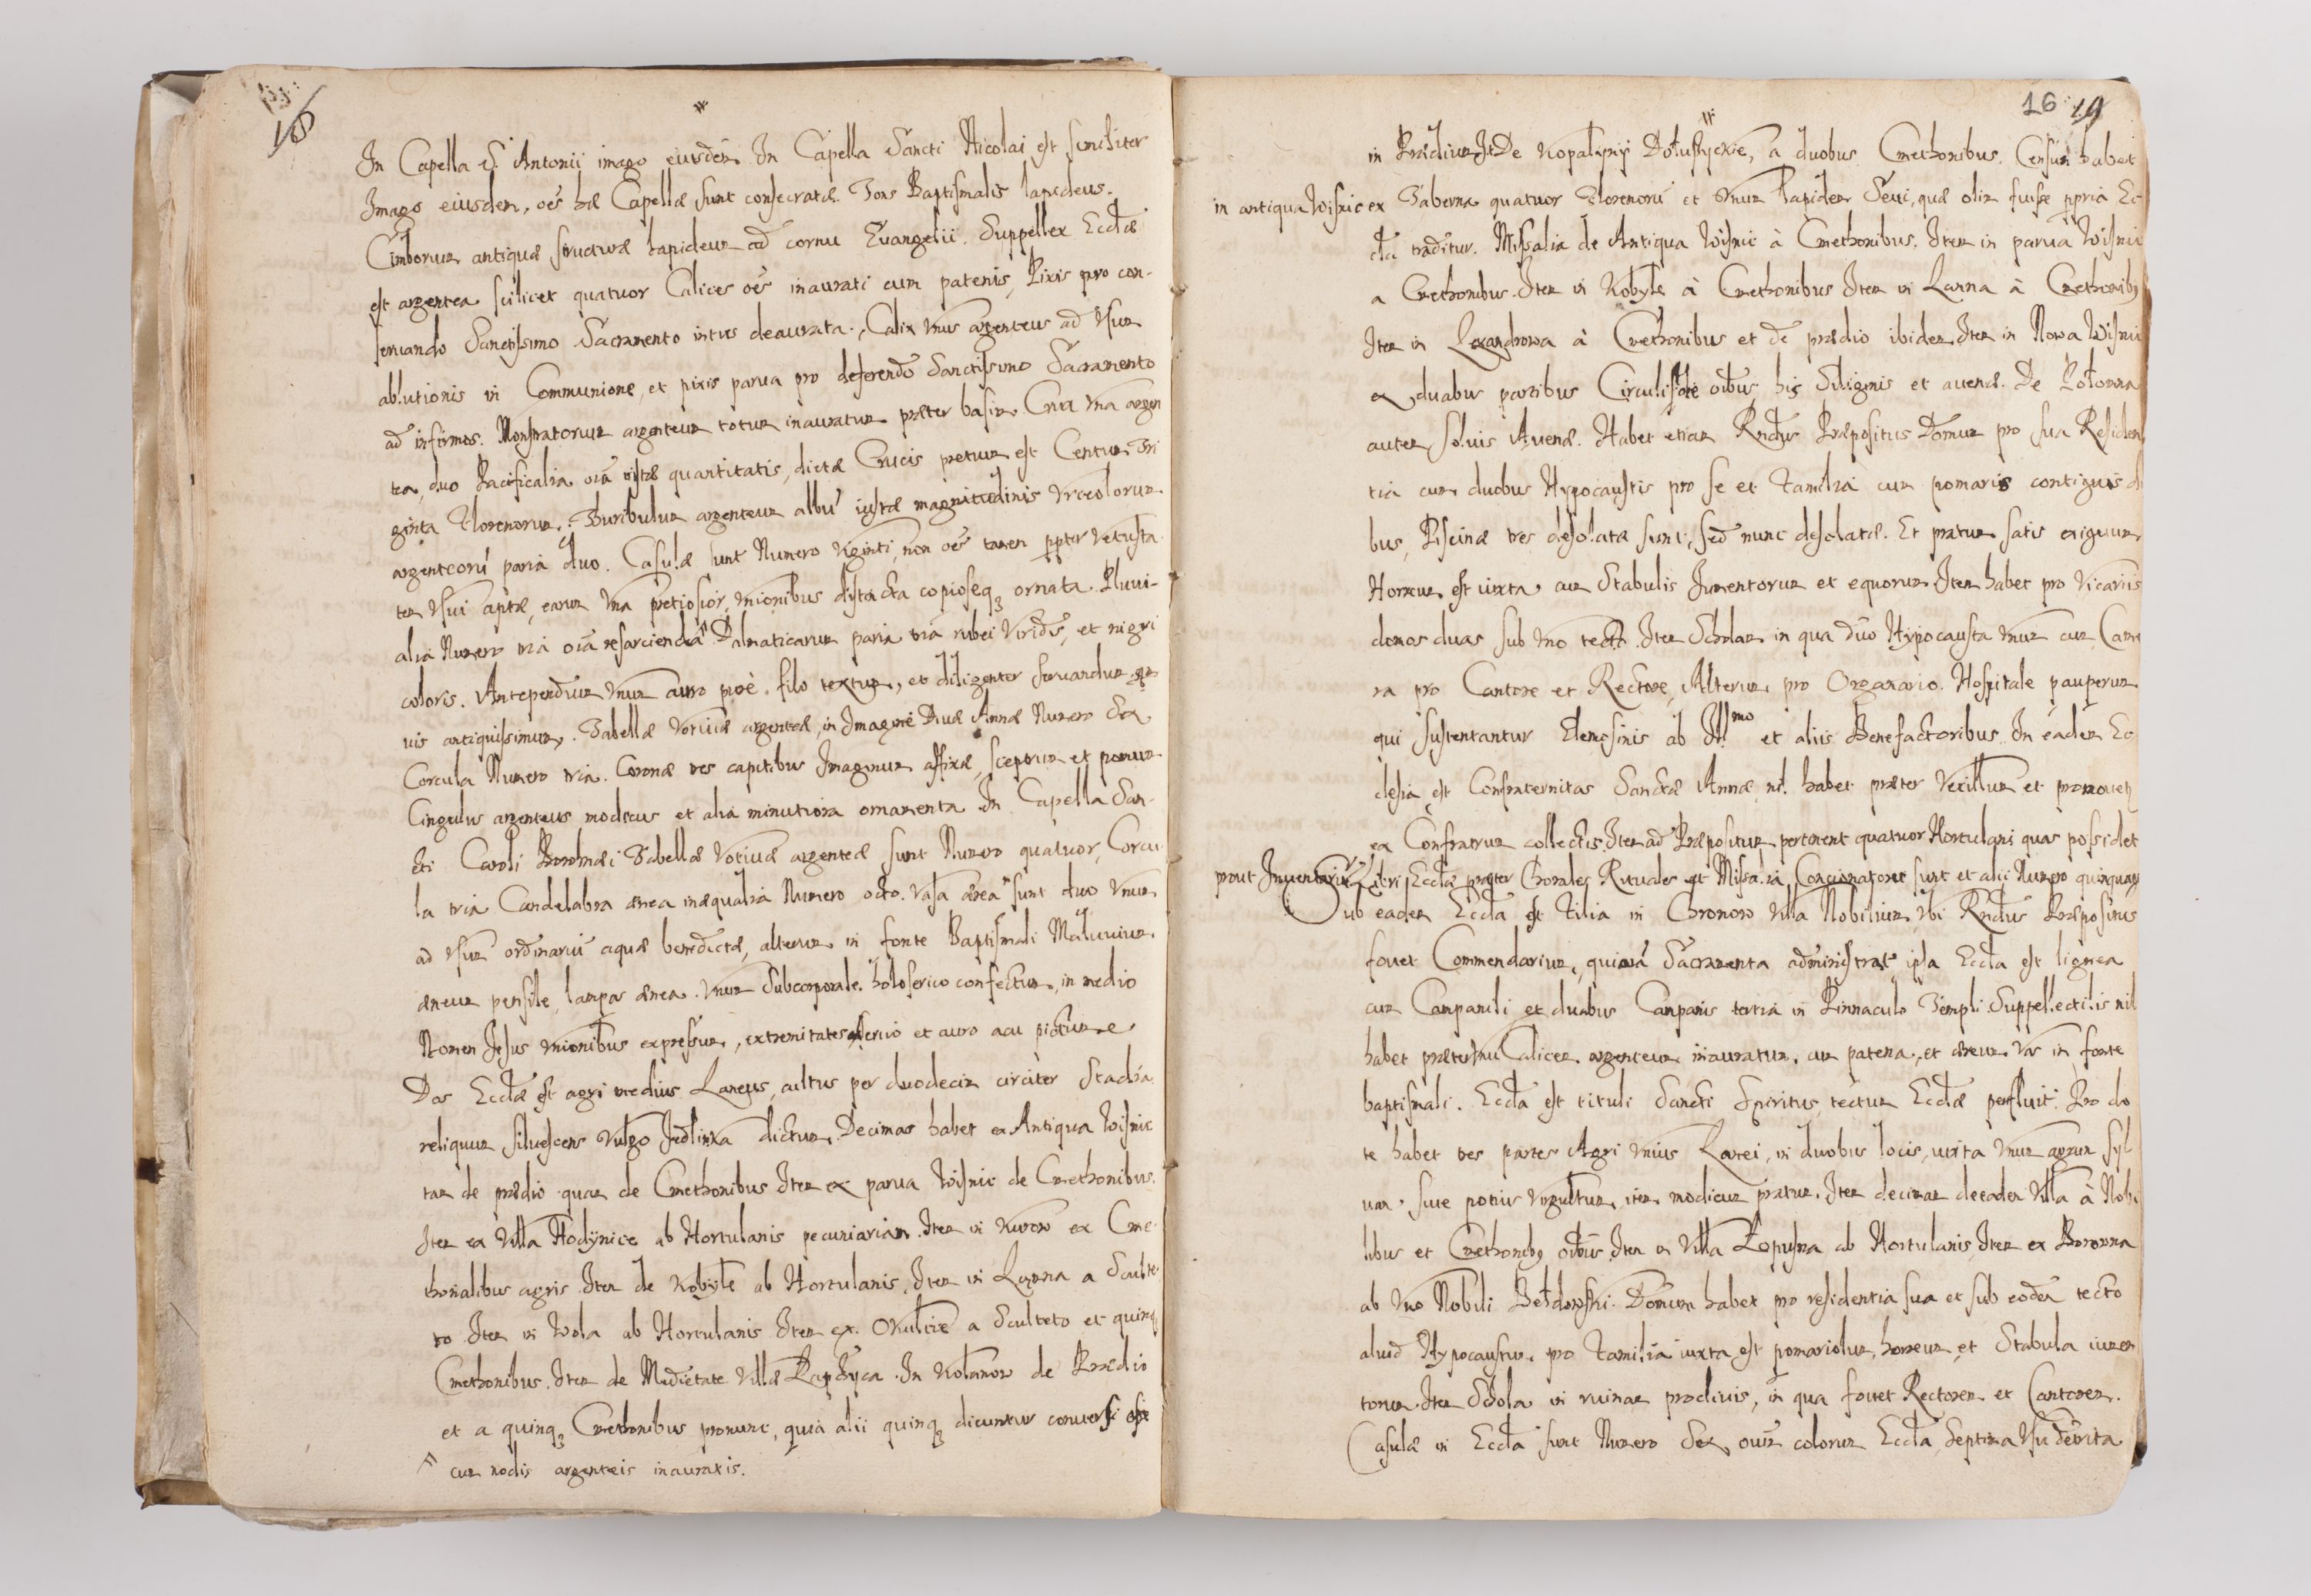 18
In Capella S. Antonii imago eiusdem. In Capella Sancti Nicolai est similiter
Imago eiusdem, oēs hæ Capellæ sunt consecratæ. Fons Baptismalis lapideus.
Cimborium antiquæ structuræ lapideum ad cornu Euangelii. Suppellex Ecclæ
est argentea scilicet quatuor Calices oēs inaurati cum patenis, Pixis pro con-
seruando Sanctissimo Sacramento intus deaurata. Calix vnus argenteus ad vsum
ablutionis in Communione, et pixis parua pro deferendo Sanctissimo Sacramento
ad infirmos. Monstratorium argenteum totum inauratum præter basim. Crux vna argen
tea, duo Pacificalia oīa iustæ quantitatis, dictæ Crucis pretium est Centum Tri
ginta Florenorum. Turibulum argenteum albū iustæ magnitudinis Vrceolorum
argenteorū paria duo. Casulæ sunt Numero viginti, non oēs tamen ppter vetusta
tem vsui aptæ, earum vna pretiosior, vnionibus distincta copioseq; ornata. Pluui-
alia Numero tria oīa resarcienda ^ Dalmaticarum paria tria rubei viridis, et nigri
coloris. Antependium vnum auro filo textum, et diligenter seruandum qua
uis antiquissimum. Tabellæ votiuæ argenteæ, in Imagine Diuæ Annæ Numero Sex
Corcula Numero tria. Coronæ tres capitibus Imaginum affixæ, sceptrum et pomum
Cingulus argenteus modicus et alia minutiora ornamenta. In Capella San-
cti Caroli Boromæi Tabellæ votiuæ argenteæ sunt Numero quatuor, Corcu-
la tria Candelabra ænea inæqualia Numero octo. Vasa ærea sunt duo vnum
ad vsum ordinariū aquæ benedictæ, alterum in fonte Baptismali Maluuium
æneum pensile, lampas ænea. Vnum Subcorporale holoserico confectum, in medio
Nomen Jesus vnionibus expressum, extremitates serico et auro acu pictum
Dos Ecclæ est agri medius Laneus, cultus per duodecim circiter Stadia.
reliquum siluescens vulgo Jedlinka dictum. Decimas habet ex Antiqua Wisnic
tam de prædio quam de Cmethonibus Item ex parua Wisnic de Cmethonibus.
Item ex Villa Hodynice ab Hortulanis pecuniariam. Item in Kurow ex Cme
thonalibus agris Item de Kobyle ab Hortulanis, Item in Lexna a Sculte
to Item in Wola ab Hortulanis Item ex Okulice a Sculteto et quinq;
Cmethonibus. Item de Medietate Villæ Kapczyca. In Kolanow de Prædio
et a quinq; Cmethonibus pronunc, quia alii quinq; dicuntur conuersi esse
^ cum nodis argenteis inauratis.
16 19
in Prædium Jt De Kopaliny Doluszyckie, a duobus Cmethonibus. Censum habet
in antiqua Wisnic ex Taberna quatuor Florenorū et vnum Lapidem Seui, quæ olim fuisse ppria Ec
cłæ traditur. Missalia de Antiqua Wisnic à Cmethonibus. Item in parua Wisnic
a Cmethonibus. Item in Kobyle à Cmethonibus Item in Lexna à Cmethonibq
Item in Lexandrowa à Cmethonibus et de prædio ibidem Item in Nowa Wisnic
ex duabus partibus oībus his Siliginis et auenæ. De Połomna
autem solius Auenæ. Habet etiam Rndus Præpositus Domum pro sua Residen
tia cum duobus Hypocaustis pro se et Familia cum pomariis contiguis
bus, Piscinæ tres desolatæ sunt, sed nunc desolatæ. Et pratum satis exiguum
Horreum est iuxta cum Stabulis Jumentorum et equorum Item habet pro Vicariis
domos duas sub vno tecto. Item Scholam in qua duo Hypocausta vnum cum Came
ra pro Cantore et Rectore, Alterum pro Organario. Hospitale pauperum
qui sustentantur Elemosinis ab Ill.mo et aliis Benefactoribus. In eadem Ec
clesia est Confraternitas Sanctæ Annæ nil habet præter Vexillum et
ex Confratrum collectis. Item ad Præpositum pertinent quatuor Hortulani quos possidet
prout Inuentarium Libri Ecclæ præter Chorales Rituales et Missalia, Concionatores sunt et alii Numero quinquag
Sub eadem Eccla est Filia in Chronow Villa Nobilium, vbi Rndus Præpositus
fouet Commendarium, qui oīa Sacramenta administrat ipsa Eccla est lignea
cum Campanili et duabus Campanis tertia in Pinnaculo Templi Suppellectilis nil
habet præter vnū Calicem argenteum inauratum, cum patena, et æreum vas in fonte
baptismali. Eccla est tituli Sancti Spiritus, tectum Ecclæ perfluit. Pro do
te habet tres partes Agri vnius Lanei, in duobus locis, iuxta vnum agrum syl
uam, siue potius virgultum, item modicum pratum. Item decimam de eadem Villa à Nobi
libus et Cmethonibq oībus Item in Villa Łopuszna ab Hortulanis, Item ex Borowna
ab vno Nobili Bełdowski. Domum habet pro residentia sua et sub eodem tecto
aliud Hypocaustum pro Familia iuxta est pomariolum, horreum et Stabula iumen
torum Item Schola in ruinam procliuis, in qua fouet Rectorem et Cantorem.
Casulæ in Eccla sunt Numero Sex, colorum Eccla, Septima vsu detrita